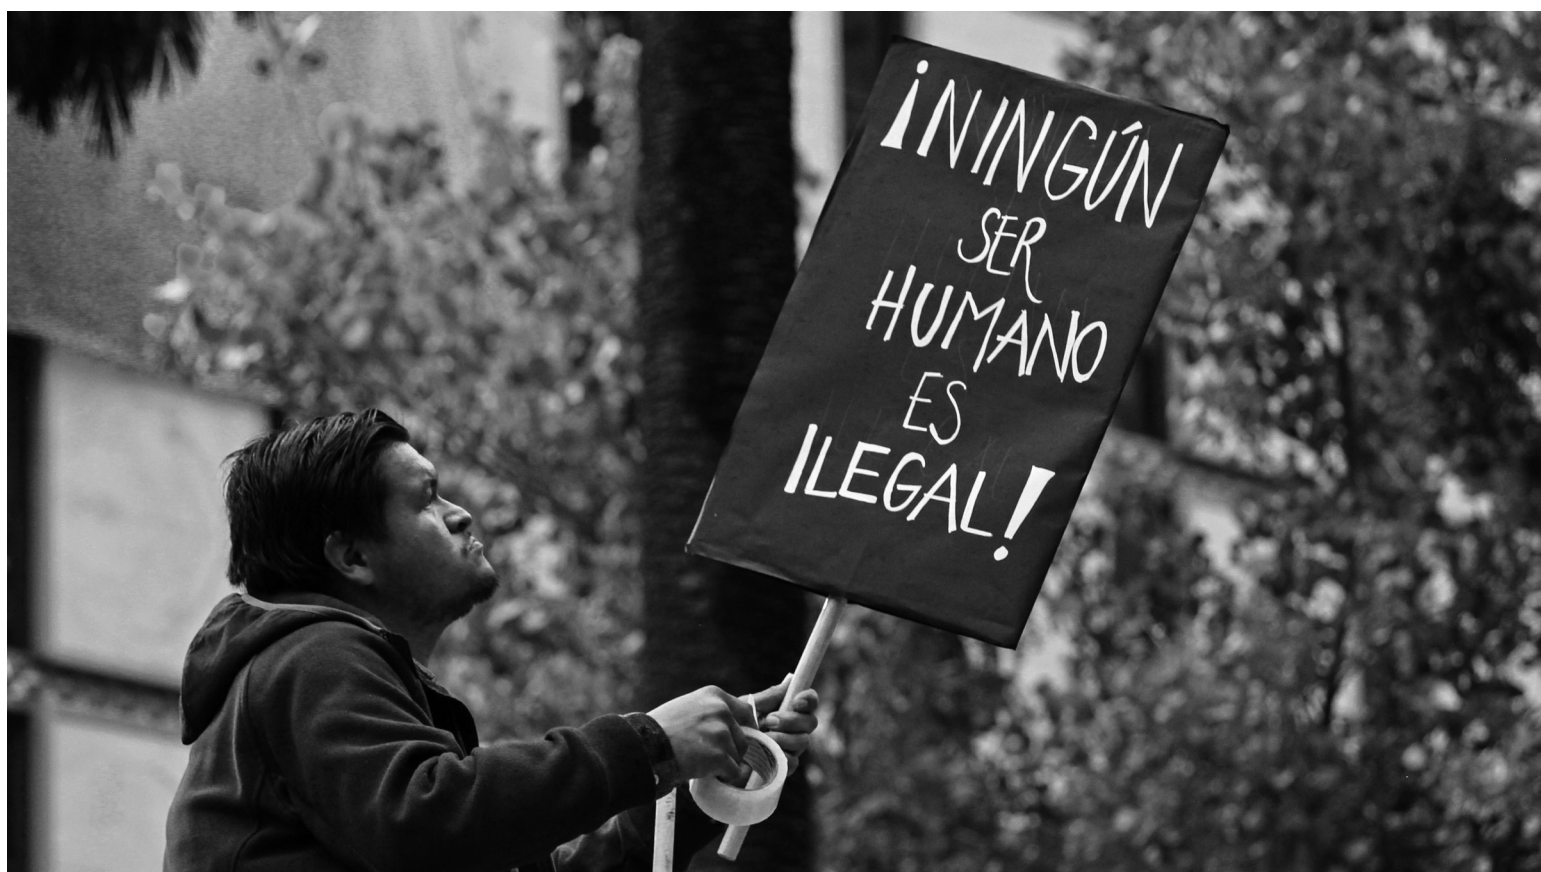 ¡NINGÚN
SER
HUMANO
ES
ILEGAL!